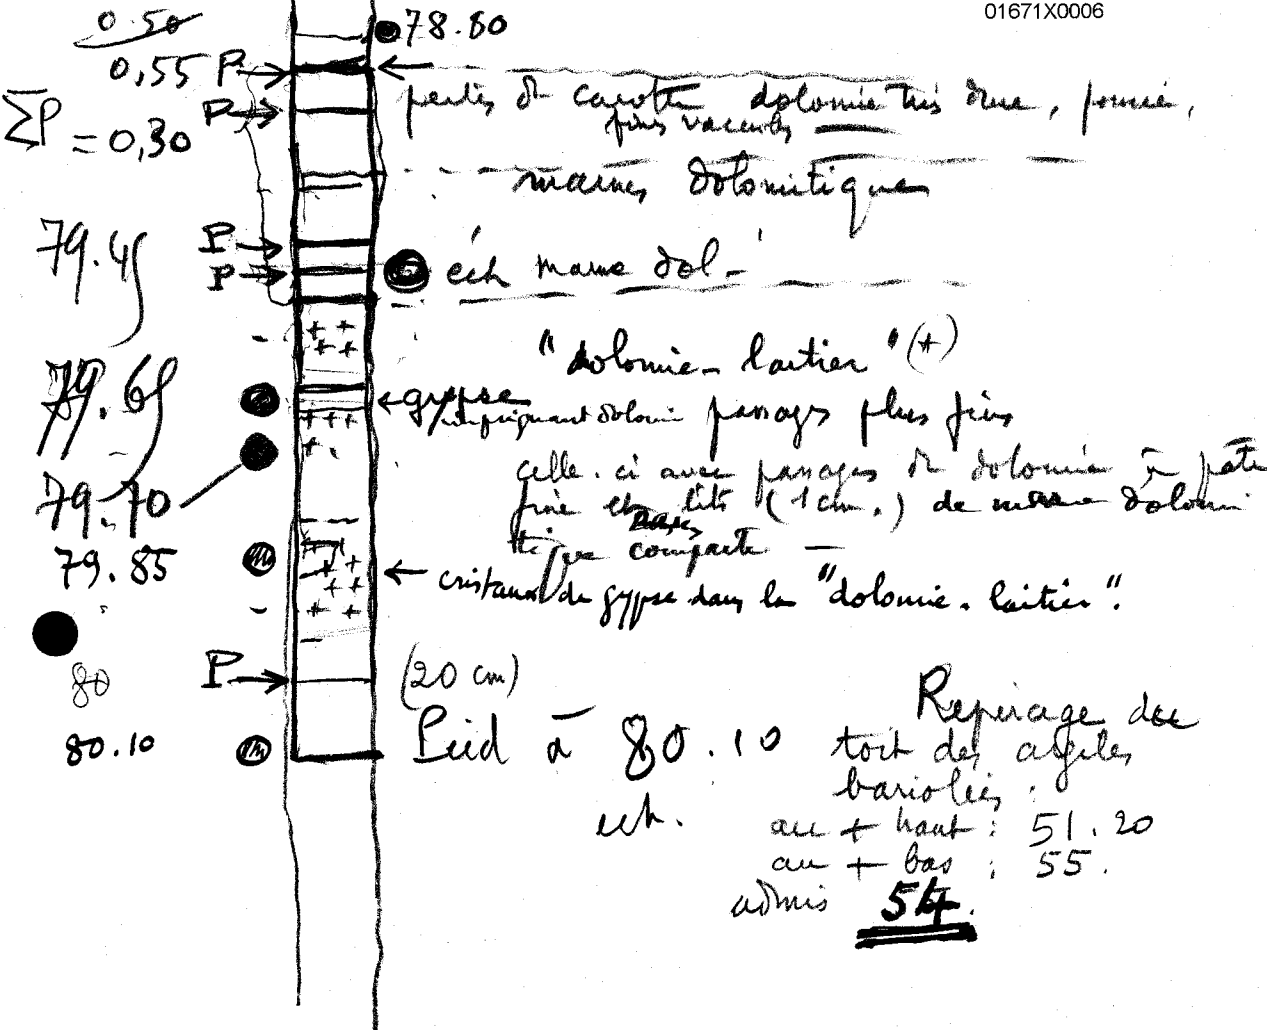 01671X0006
0.50
78.60
0,55 P
pertes de carotte dolomie très dure,
P
fins
ΣP = 0,30
marnes dolomitiques
79.45
P
P
éch marne dol -
"dolomie - laitier" (+)
79.65
gypse
imprégnant dolomie passages plus fins
celle.ci avec passages de dolomie à pâte
79.70
fine et lits (1 cm.) de marne dolomi
tique compacte —
79.85
cristaux de gypse dans la "dolomie - laitier".
80
P
(20 cm)
80.10
Pied à 80.10
ech.
Repérage du
toit des argiles
bariolées :
au + haut : 51.20
au + bas : 55.
admis 54.